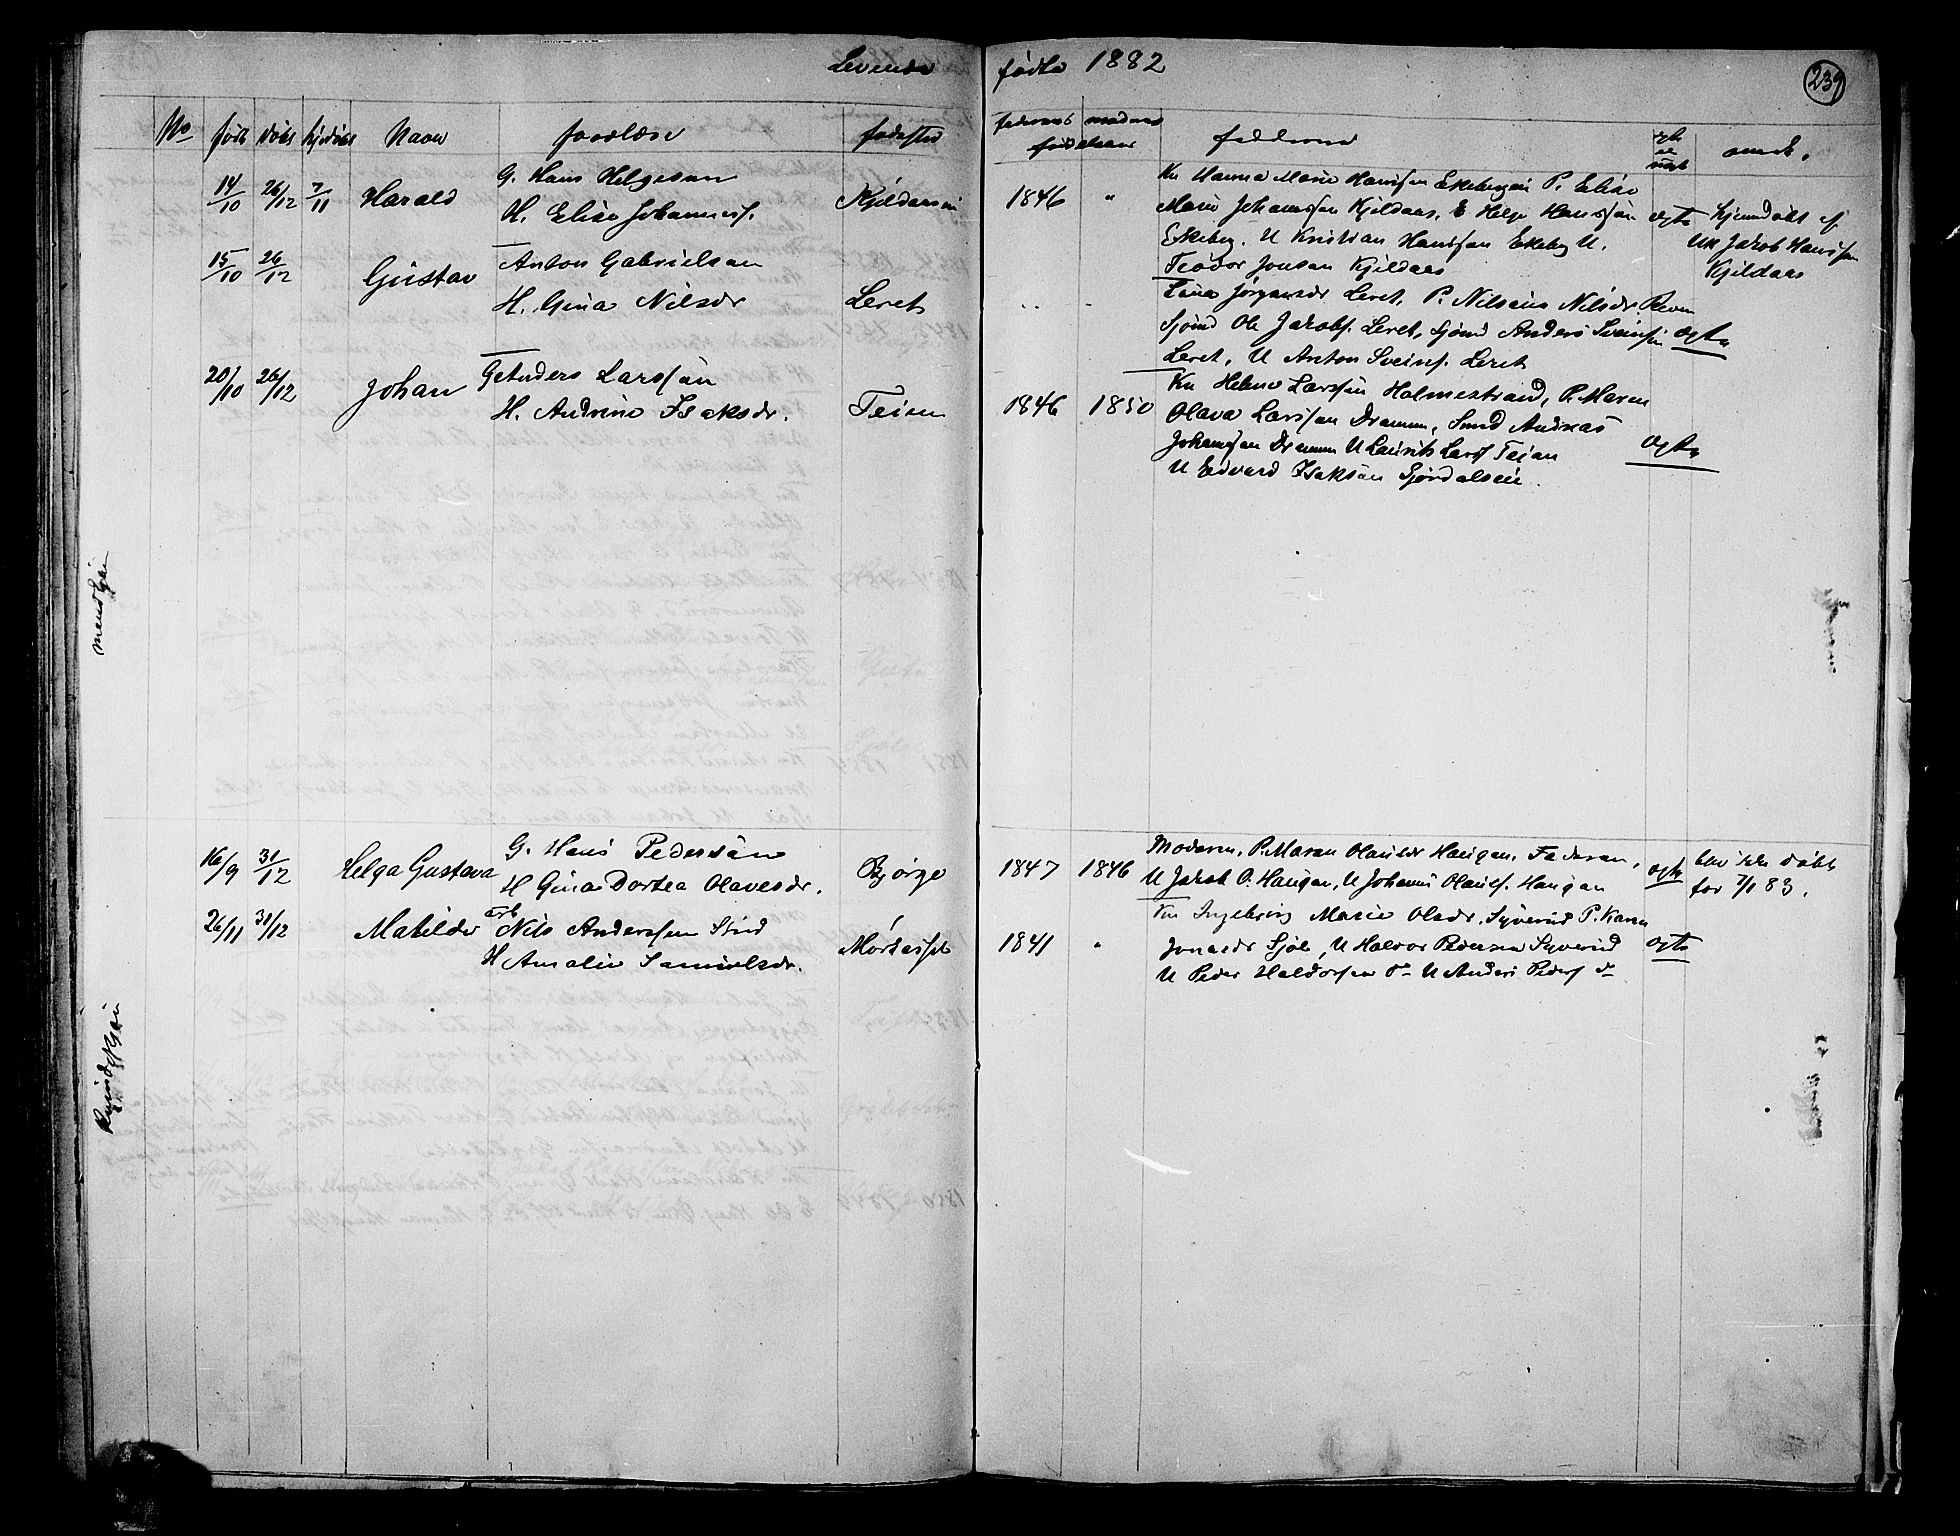 Levende fødte 1882
239
No født døbt hjdøbt Navn forældre fødested faderens moders fødselsaar fadderne ægte el uægt anmk.
mandkjøn
14/10 26/12 7/11 Harald G. Hans Helgesen
H. Elise Johannesf. Kjildaas
1846 "
Kv Hanna Marie Hansen Ekeberg P. Elise
Marie Johannsen Kjildaas, E Helge Hansen
Ekeberg. U Kristian Hansen Ekeberg U.
Teodor Jonsen Kjildaas
ægte
hjemdøbt af
UK Jakob Hansen
Kjildaas
15/10 26/12 Gustav Anton Gabrielsen
H. Gina Nilsdr Leret
Lina Jørgensdr Leret, P. Nilsine Nilsdr Revn
Ole Jakobs. Leret, Anders Sveinsen
Leret, U Anton Sveins. Leret
ægte
20/10 26/12 Johan G Anders Larssen
H. Andrine Isaksdr. Teien
1846 1850
Kv Helene Larssen Holmestrand, P. Maren
Olava Larssen Drammen, Smed Andreas
Johannsen Drammen U Laurits Lars Teien
U Edvard Isaksen
ægte
Kvindekjøn
16/9 31/12 Helga Gustava G. Hans Pedersen
H Gina Dortea Olavesdr. Bjørge
1847 1846
Moderen, P. Maren Olausdr Haugen, Faderen,
U Jakob O. Haugen, U Johannes Olaus. Haugen
ægte
blev ikke døbt
før 7/1 83.
26/11 31/12 Matilde arb Nils Andersen
H Amalie Samuelsdr.
1841 "
Kv Ingeborg Marie Olsdr. Syverud P. Karen
Jonasdr Sjøl, U Halvor Pedersen Syverud
U Peder Haldorsen do U Anders Peders do
ægte